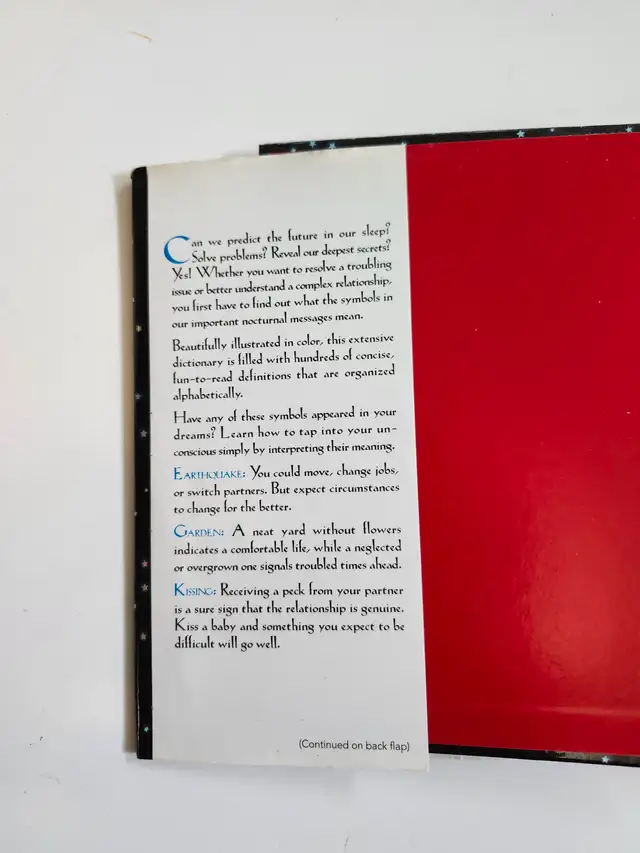 Can we predict the future in our sleep?
Solve problems? Reveal our deepest secrets?
Yes! Whether you want to resolve a troubling
issue or better understand a complex relationship,
you first have to find out what the symbols in
our important nocturnal messages mean.
Beautifully illustrated in color, this extensive
dictionary is filled with hundreds of concise,
fun-to-read definitions that are organized
alphabetically.
Have any of these symbols appeared in your
dreams? Learn how to tap into your un-
conscious simply by interpreting their meaning.
EARTHQUAKE: You could move, change jobs,
or switch partners. But expect circumstances
to change for the better.
GARDEN: A neat yard without flowers
indicates a comfortable life, while a neglected
or overgrown one signals troubled times ahead.
KISSING: Receiving a peck from your partner
is a sure sign that the relationship is genuine.
Kiss a baby and something you expect to be
difficult will go well.
(Continued on back flap)